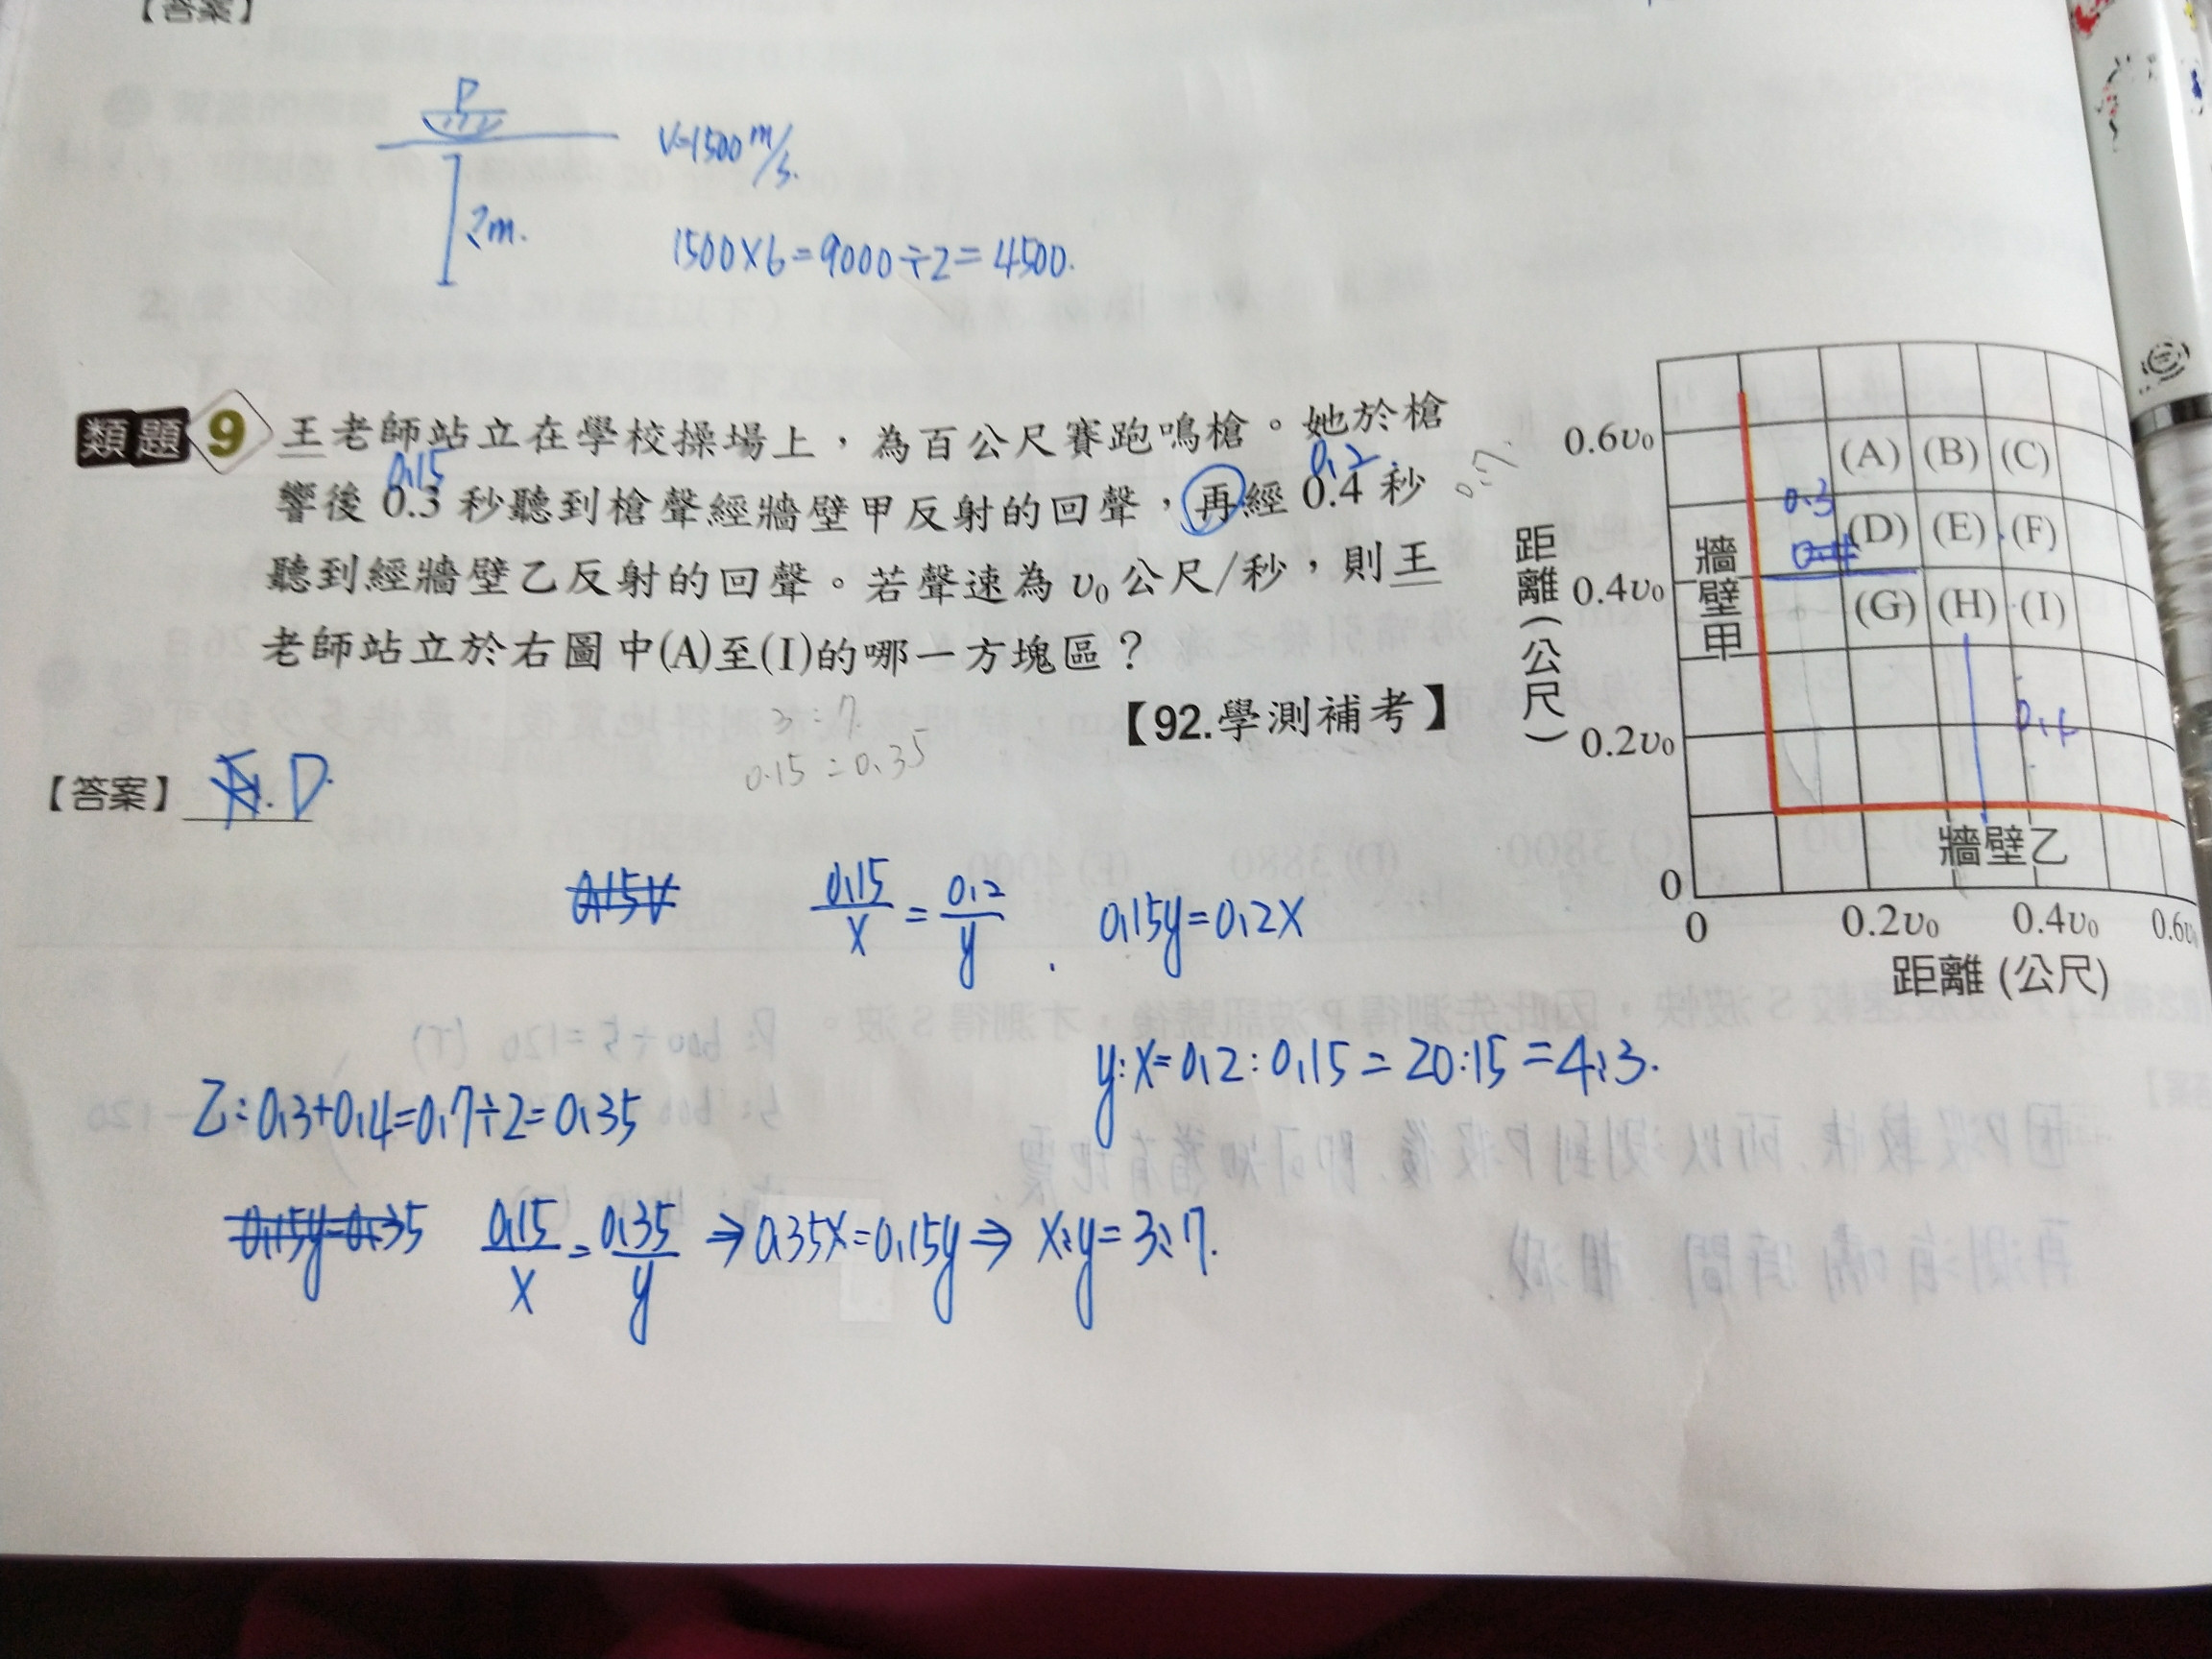 【答案】
P
V=1500 m/s.
2m.
1500×6=9000÷2=4500.
類題 9 王老師站立在學校操場上，為百公尺賽跑鳴槍。她於槍
0.15 0.2
響後 0.3 秒聽到槍聲經牆壁甲反射的回聲，再經 0.4 秒
0.7
聽到經牆壁乙反射的回聲。若聲速為 υ₀ 公尺/秒，則王
老師站立於右圖中(A)至(I)的哪一方塊區？
【92.學測補考】
3:7
0.15:0.35
【答案】 A. D.
距離(公尺)
0.6υ₀
(A) (B) (C)
0.3
(D) (E) (F)
0.4
0.4υ₀
(G) (H) (I)
牆壁甲
0.4
0.2υ₀
牆壁乙
0
0 0.2υ₀ 0.4υ₀ 0.6υ
距離(公尺)
0.15V
0.15/x = 0.2/y
0.15y=0.2x
y:x=0.2:0.15=20:15=4:3.
乙:0.3+0.4=0.7÷2=0.35
0.15y=0.35
0.15/x = 0.35/y ⇒ 0.35x=0.15y ⇒ x:y=3:7.